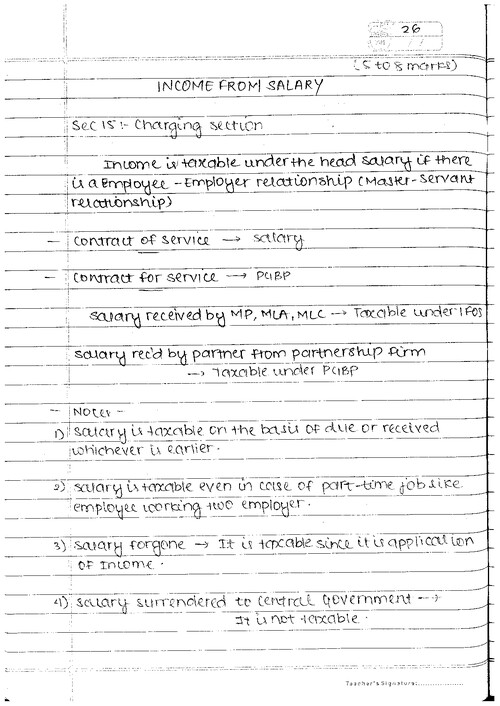 26
(5 to 8 marks)
INCOME FROM SALARY
Sec 15 :- Charging section
Income is taxable under the head salary if there
is a Employee - Employer relationship (Master-Servant
relationship)
- Contract of service → salary
- Contract for service → PGBP
salary received by MP, MLA, MLC → Taxable under IFOS
salary rec'd by partner from partnership firm
→ Taxable under PGBP
- Notes -
1) salary is taxable on the basis of due or received
whichever is earlier.
2) salary is taxable even in case of part-time job like
employee working two employer.
3) salary forgone → It is taxable since it is application
of Income.
4) salary surrendered to Central Government →
It is not taxable.
Teacher's Signature: